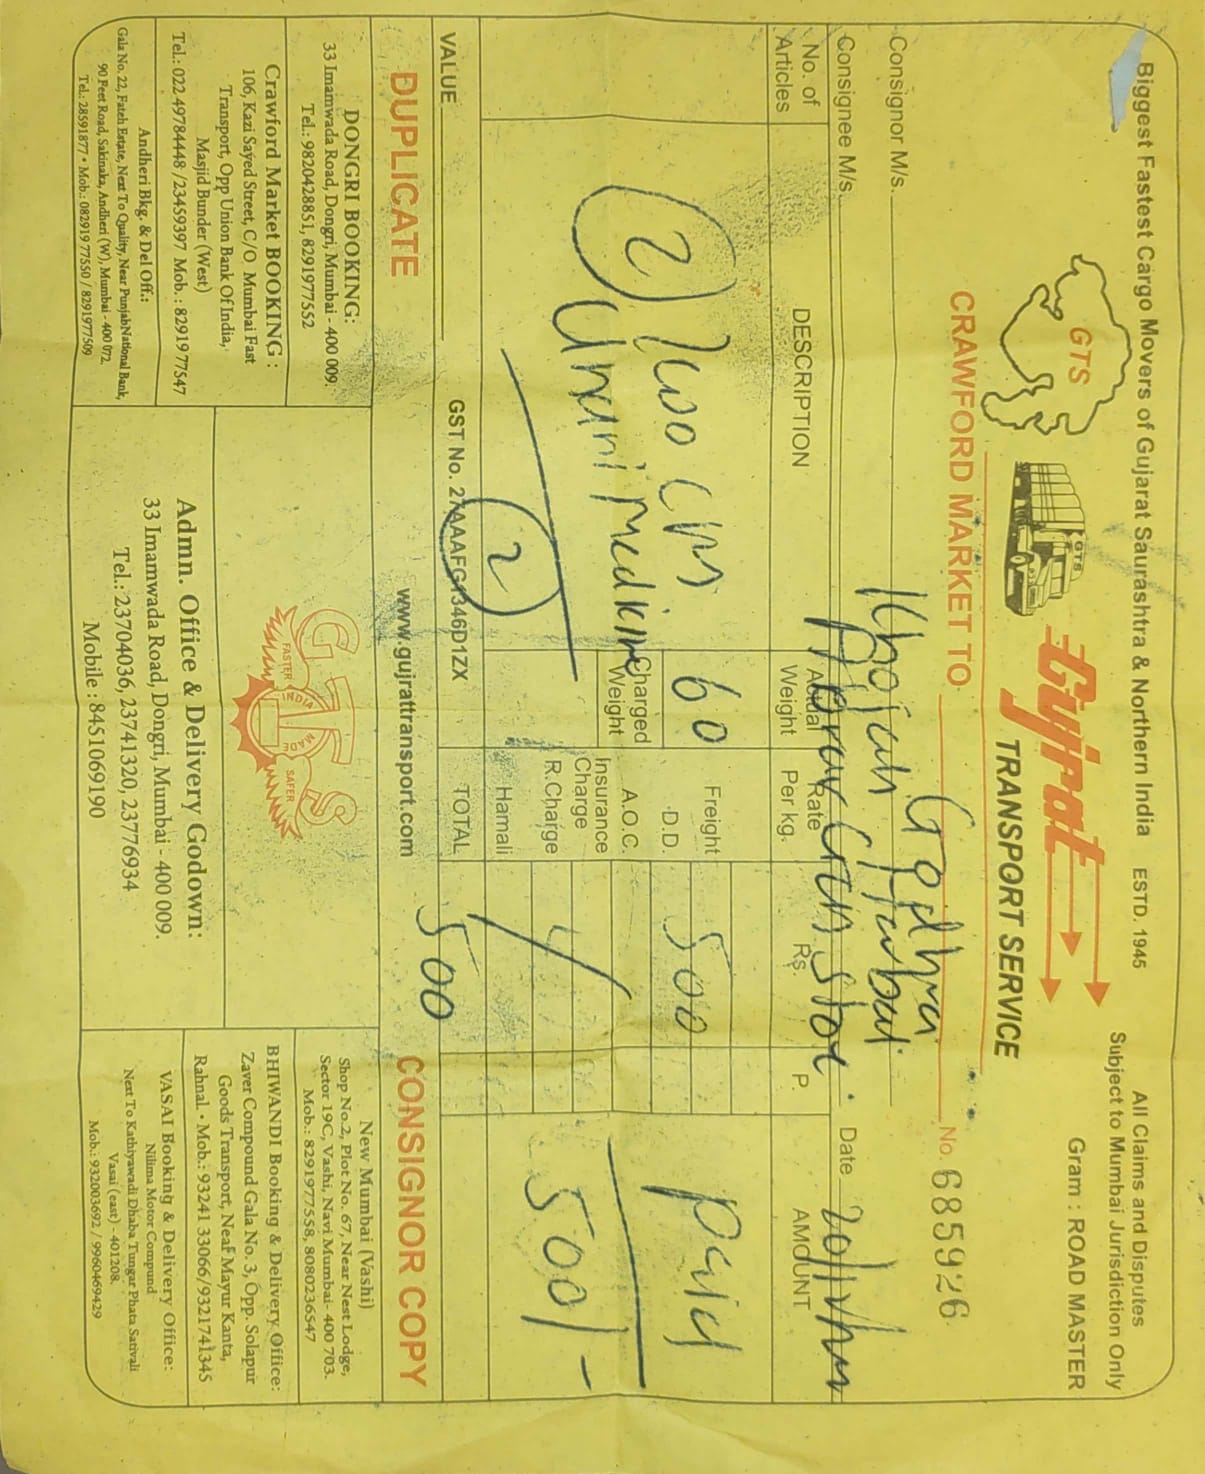 Biggest Fastest Cargo Movers of Gujarat Saurashtra & Northern India ESTD. 1945
All Claims and Disputes
Subject to Mumbai Jurisdiction Only
Gram : ROAD MASTER
GTS
GTS
Gujrat
TRANSPORT SERVICE
CRAWFORD MARKET TO Godhra
No. 685926
Consignor M/s. Khojam
Consignee M/s. Store
Date 20/1
No. of Articles
DESCRIPTION
Actual Weight
Rate Per kg.
Rs.
P.
AMOUNT
2 Two
Unani Medicine
2
60
Charged Weight
Freight
D.D. 500
A.O.C.
Insurance Charge
R.Charge
Hamali
Paid
500/-
VALUE
GST No. 27AAAFG1346D1ZX
TOTAL 500
DUPLICATE
www.gujrattransport.com
CONSIGNOR COPY
DONGRI BOOKING:
33 Imamwada Road, Dongri, Mumbai - 400 009.
Tel.: 9820428851, 8291977552
Crawford Market BOOKING :
106, Kazi Sayed Street, C/O Mumbai Fast
Transport, Opp Union Bank Of India,
Masjid Bunder (West)
Tel.: 022 49784448 /23459397 Mob.: 82919 77547
Andheri Bkg. & Del Off.:
Gala No. 22, Fateh Estate, Next To Quality, Near PunjabNational Bank,
90 Feet Road, Sakinaka, Andheri (W), Mumbai - 400 072.
Tel.: 28591877 • Mob.: 082919 77550 / 8291977509
GTS
FASTER
INDIA
MADE
SAFER
Admn. Office & Delivery Godown:
33 Imamwada Road, Dongri, Mumbai - 400 009.
Tel.: 23704036, 23741320, 23776934
Mobile : 8451069190
New Mumbai (Vashi)
Shop No.2, Plot No. 67, Near Nest Lodge,
Sector 19C, Vashi, Navi Mumbai- 400 703.
Mob.: 8291977558, 8080236547
BHIWANDI Booking & Delivery Office:
Zaver Compound Gala No. 3, Opp. Solapur
Goods Transport, Near Mayur Kanta,
Rahnal. • Mob.: 93241 33066/9321741345
VASAI Booking & Delivery Office:
Nilima Motor Compund
Next To Kathiyawadi Dhaba Tungar Phata Sativali
Vasai (east) - 401208.
Mob.: 932003692 / 9960469429